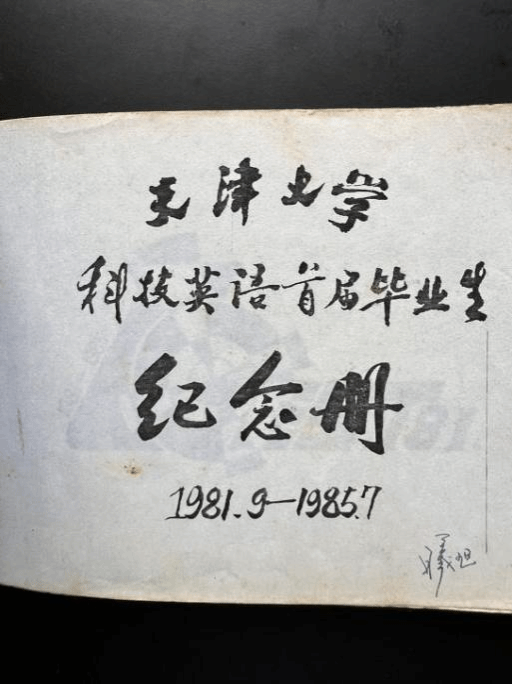 天津大学
科技英语首届毕业生
纪念册
1981.9—1985.7